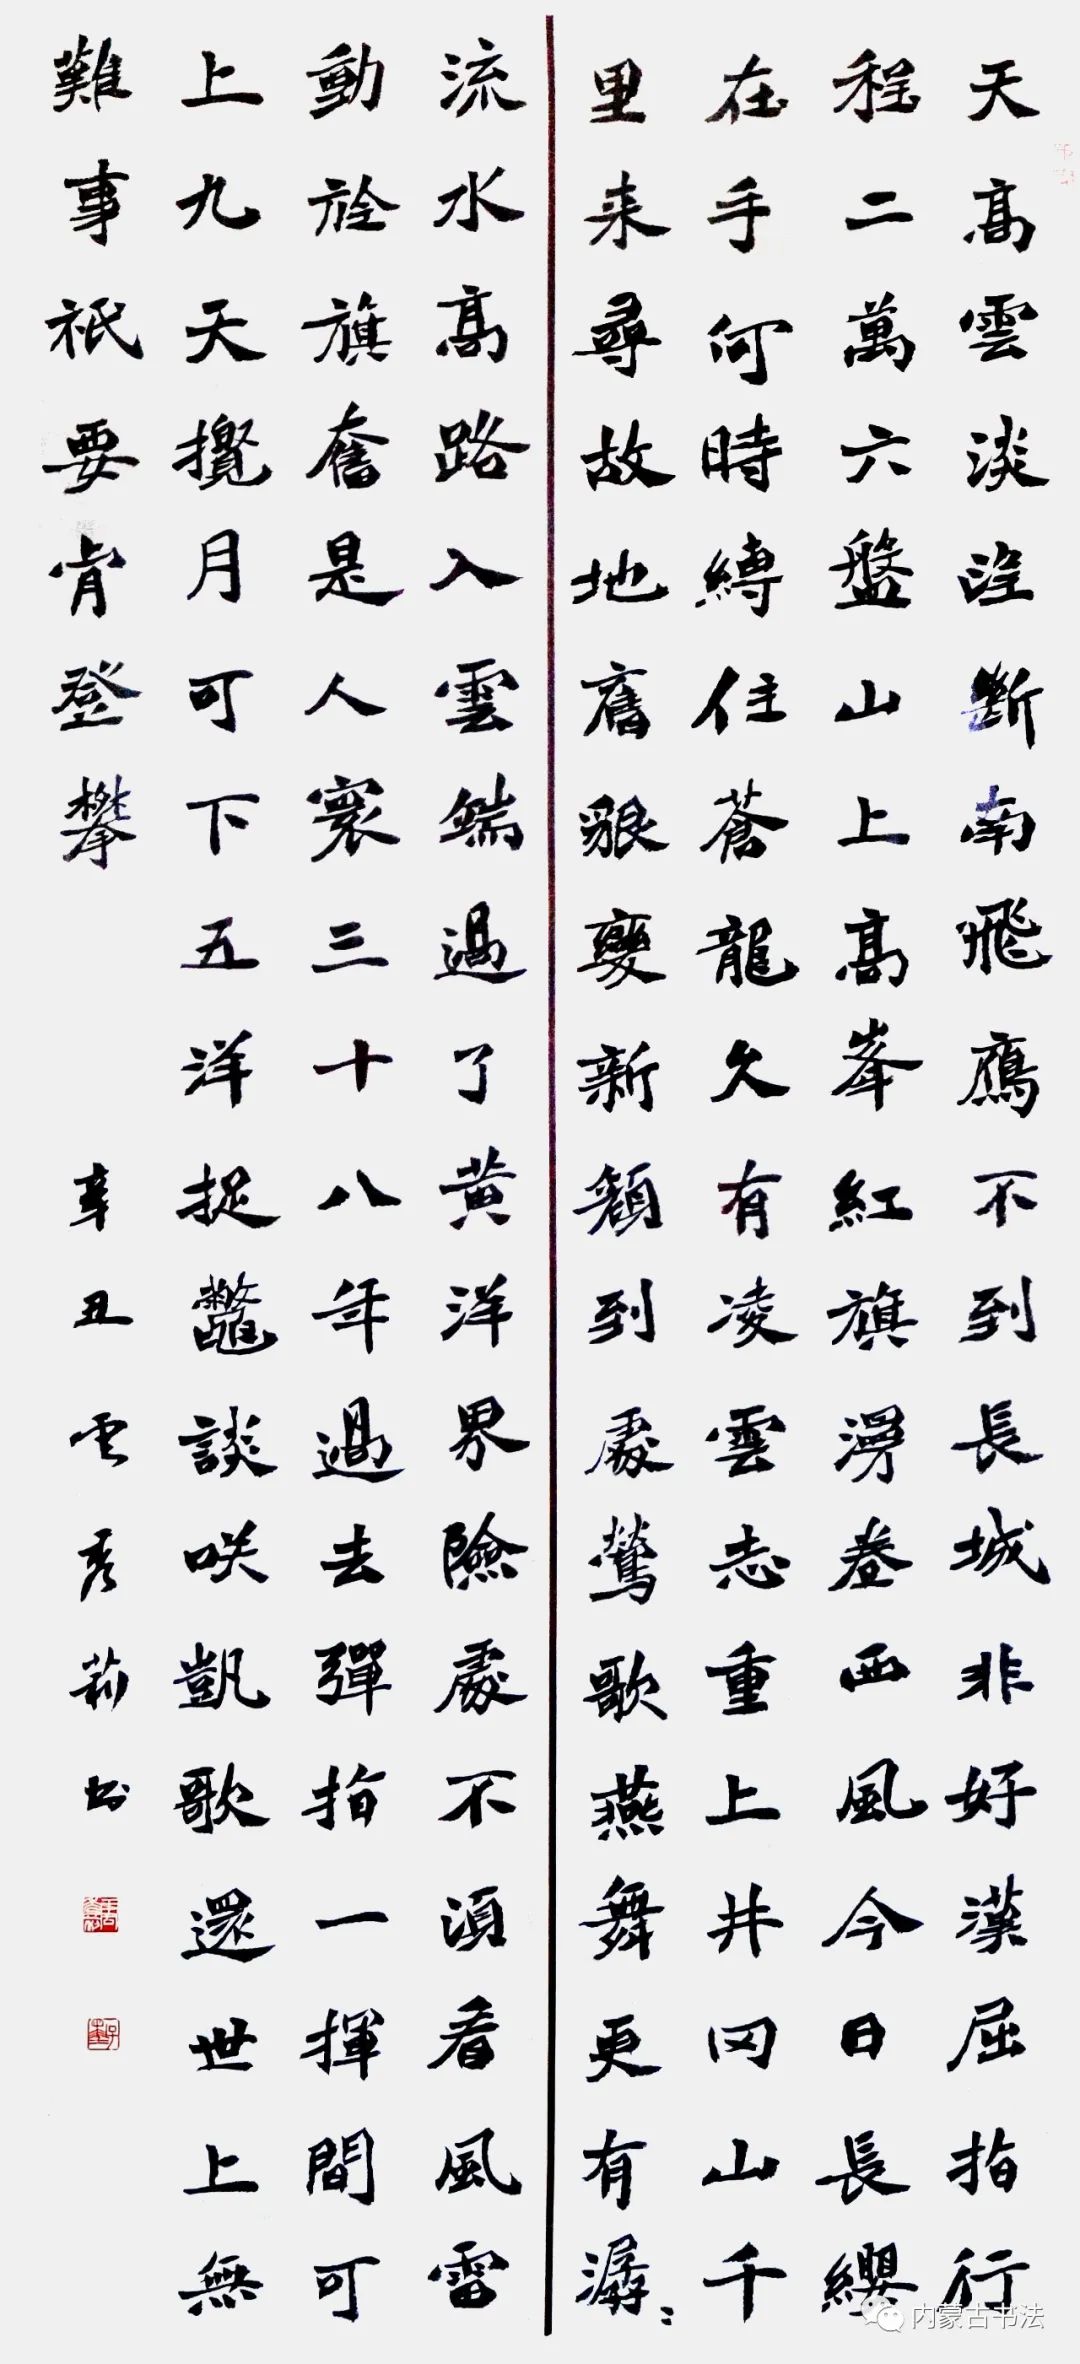 天高雲淡望斷南飛鴈不到長城非好漢屈指行
程二萬六盤山上高峯紅旗漫卷西風今日長纓
在手何時縛住蒼龍久有凌雲志重上井冈山千
里来尋故地舊貌變新顏到處鶯歌燕舞更有潺〻
流水高路入雲端過了黄洋界險處不須看風雷
動於旗奮是人寰三十八年過去彈指一揮間可
上九天攬月可下五洋捉鼈談咲凱歌還世上無
難事祇要肯登攀
辛丑云秀莉书
内蒙古书法